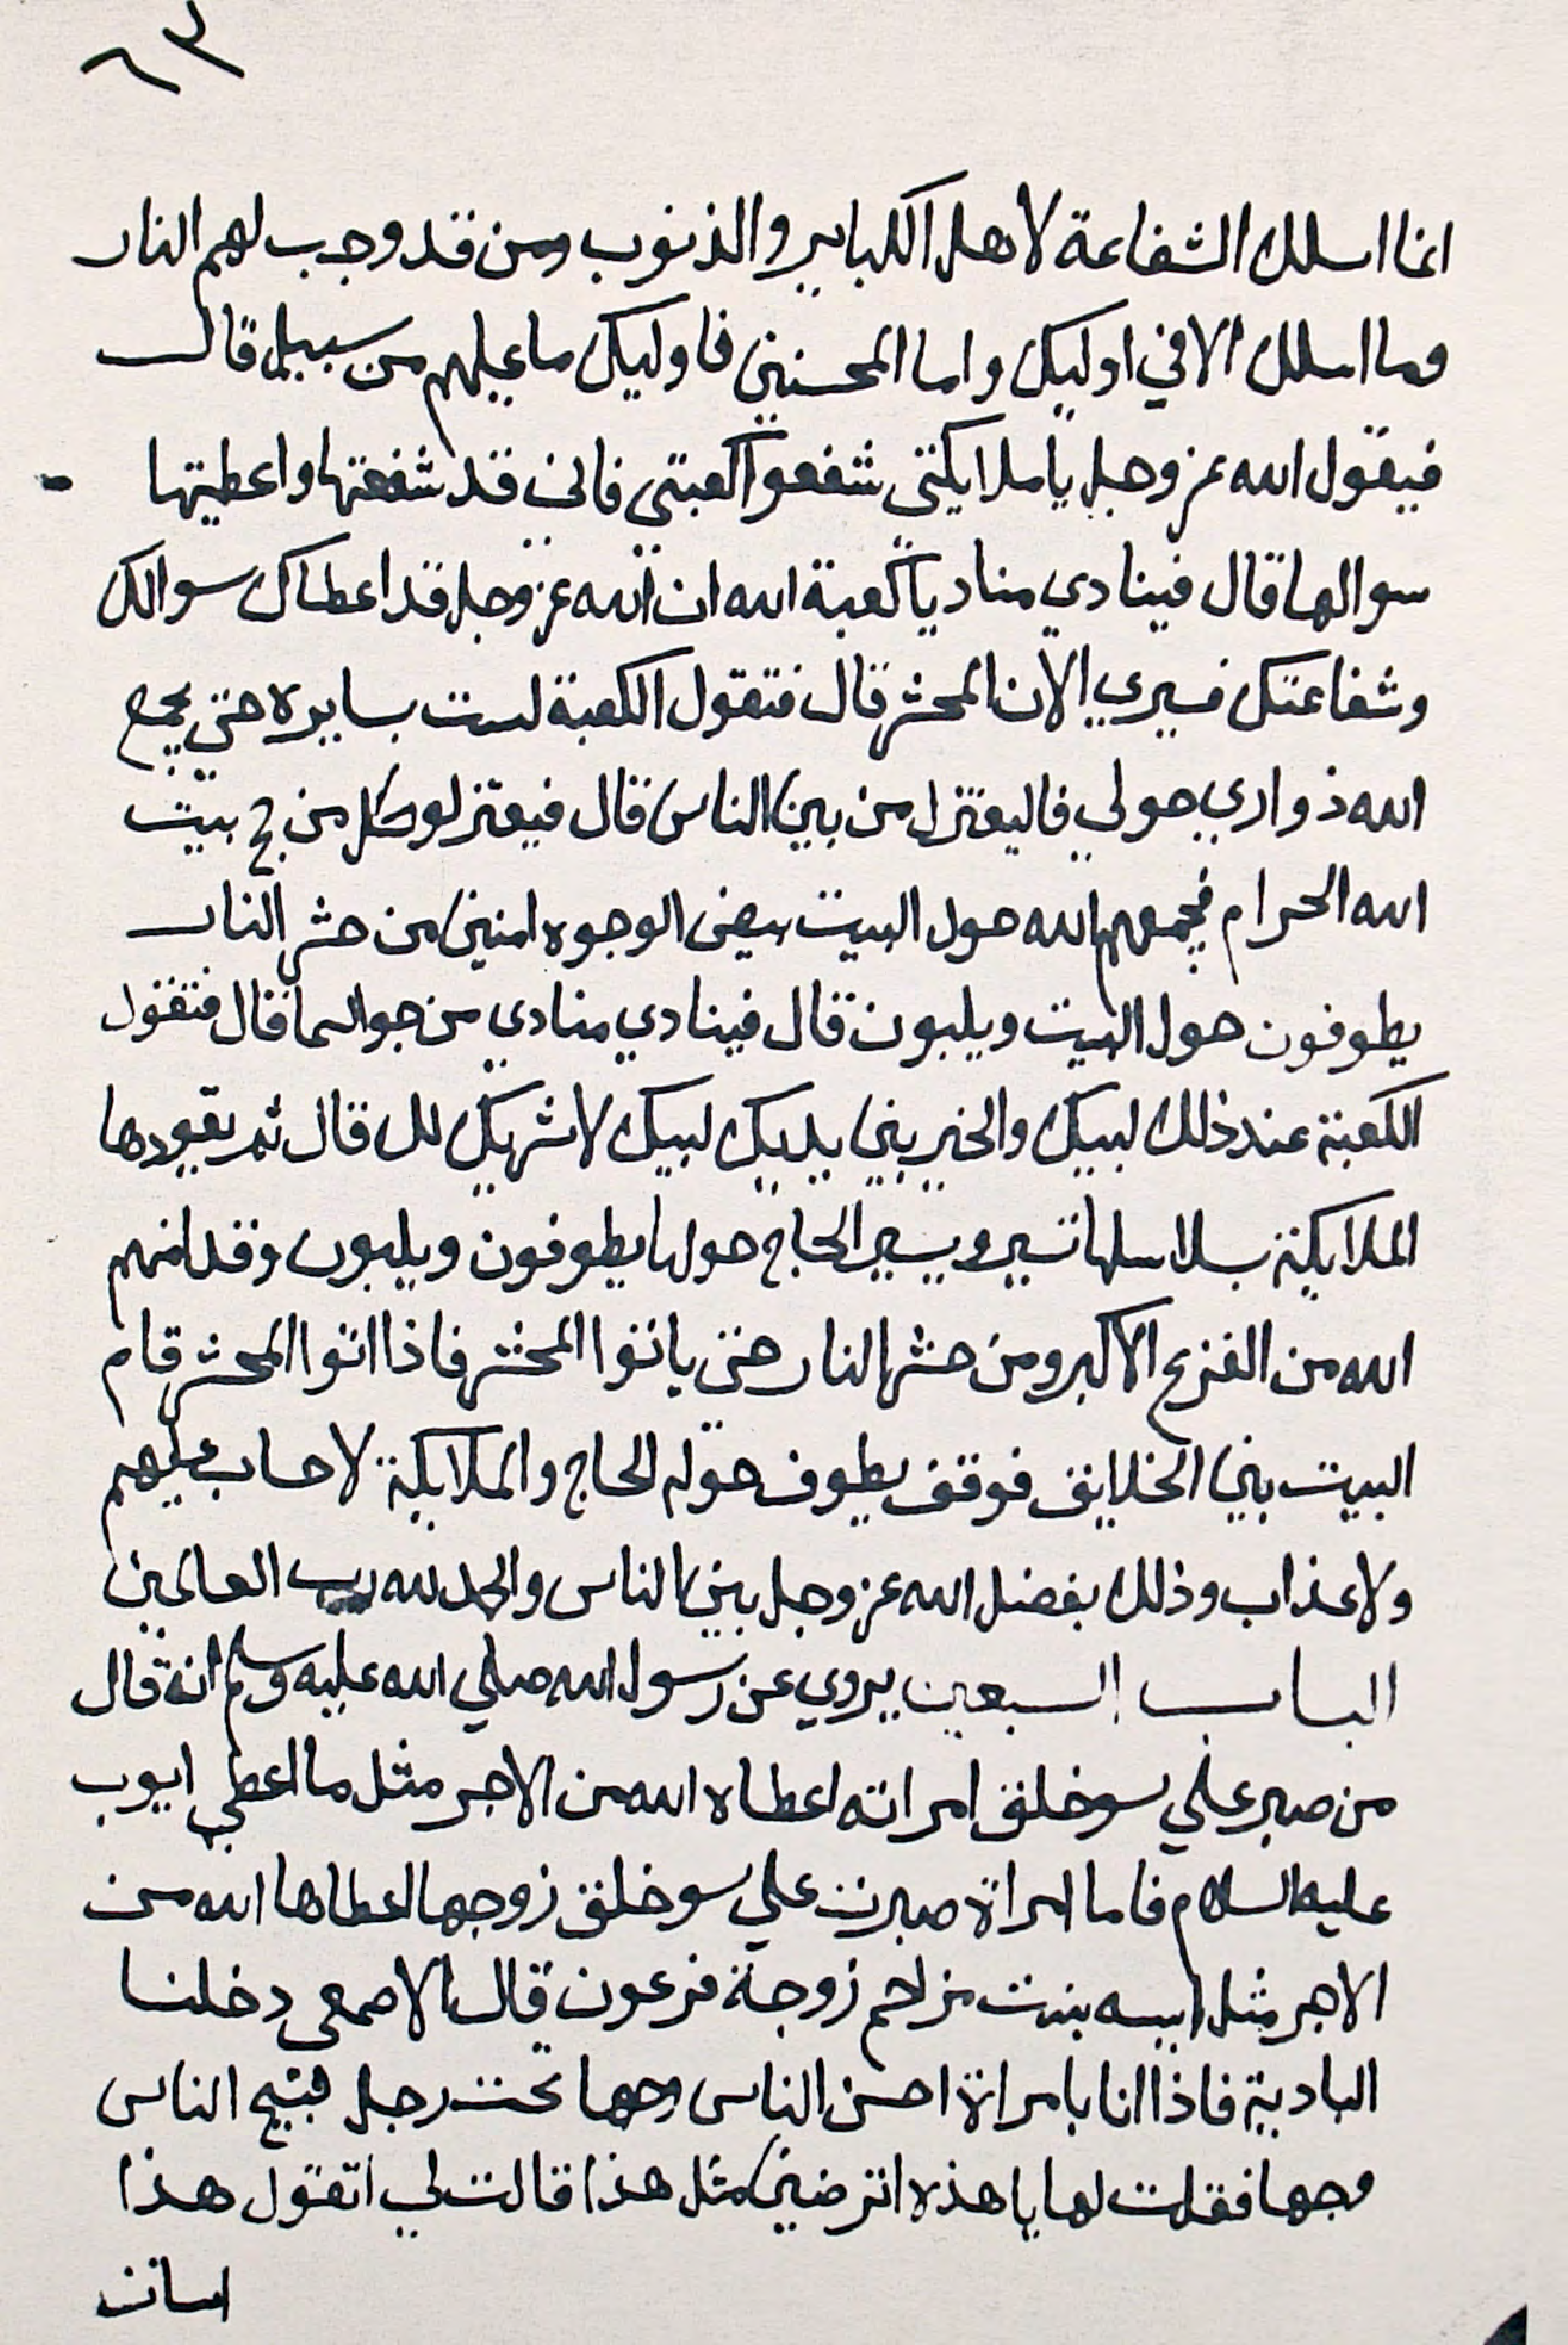 ٦٣
انما اسلك الشفاعة لاهل الكباير والذنوب ومن قد وجب لهم النار
وما اسلك الا في اوليك واما المحسنين فاوليك ما عليهم من سبيل قال
فيقول الله عز وجل يا ملايكتي شفعوا كعبتي فاني قد شفعتها واعطيتها
سوالها قال فينادي مناد يا كعبة الله ان الله عز وجل قد اعطاك سوالك
وشفاعتك فسيري الان المحشر قال فتقول الكعبة لست بسايره حتي يجمع
الله ذواري حولي فاليعتزل من بين الناس قال فيعتزلو كل من حج بيت
الله الحرام فيجمعهم الله حول البيت بيض الوجوه امنين من حشر النار
يطوفون حول البيت ويلبون قال فينادي منادي من جو السما قال فتقول
الكعبة عند ذلك لبيك والخير بين يديك لبيك لا شريك لك قال ثم يقودها
الملايكة بسلاسلها تسير ويسير الحاج حولها يطوفون ويلبون وقد امنهم
الله من الفزع الاكبر ومن حشر النار حتى ياتوا المحشر فاذا اتوا المحشر قام
البيت بين الخلايق فوقف يطوف حوله الحاج والملايكة لا حساب عليهم
ولا عذاب وذلك بفضل الله عز وجل بين الناس والحمد لله رب العالمين
الباب السبعين يروي عن رسول الله صلي الله عليه وسلم انه قال
من صبر علي سو خلق امراته اعطاه الله من الاجر مثل ما اعطي ايوب
عليه السلام فاما امراة صبرت علي سو خلق زوجها اعطاها الله من
الاجر مثل اسيه بنت مزاحم زوجة فرعون قال الاصمعي دخلنا
البادية فاذا انا بامراة احسن الناس وجها تحت رجل قبيح الناس
وجها فقلت لها يا هذه اترضين مثل هذا قالت لي اتقول هذا
اسات